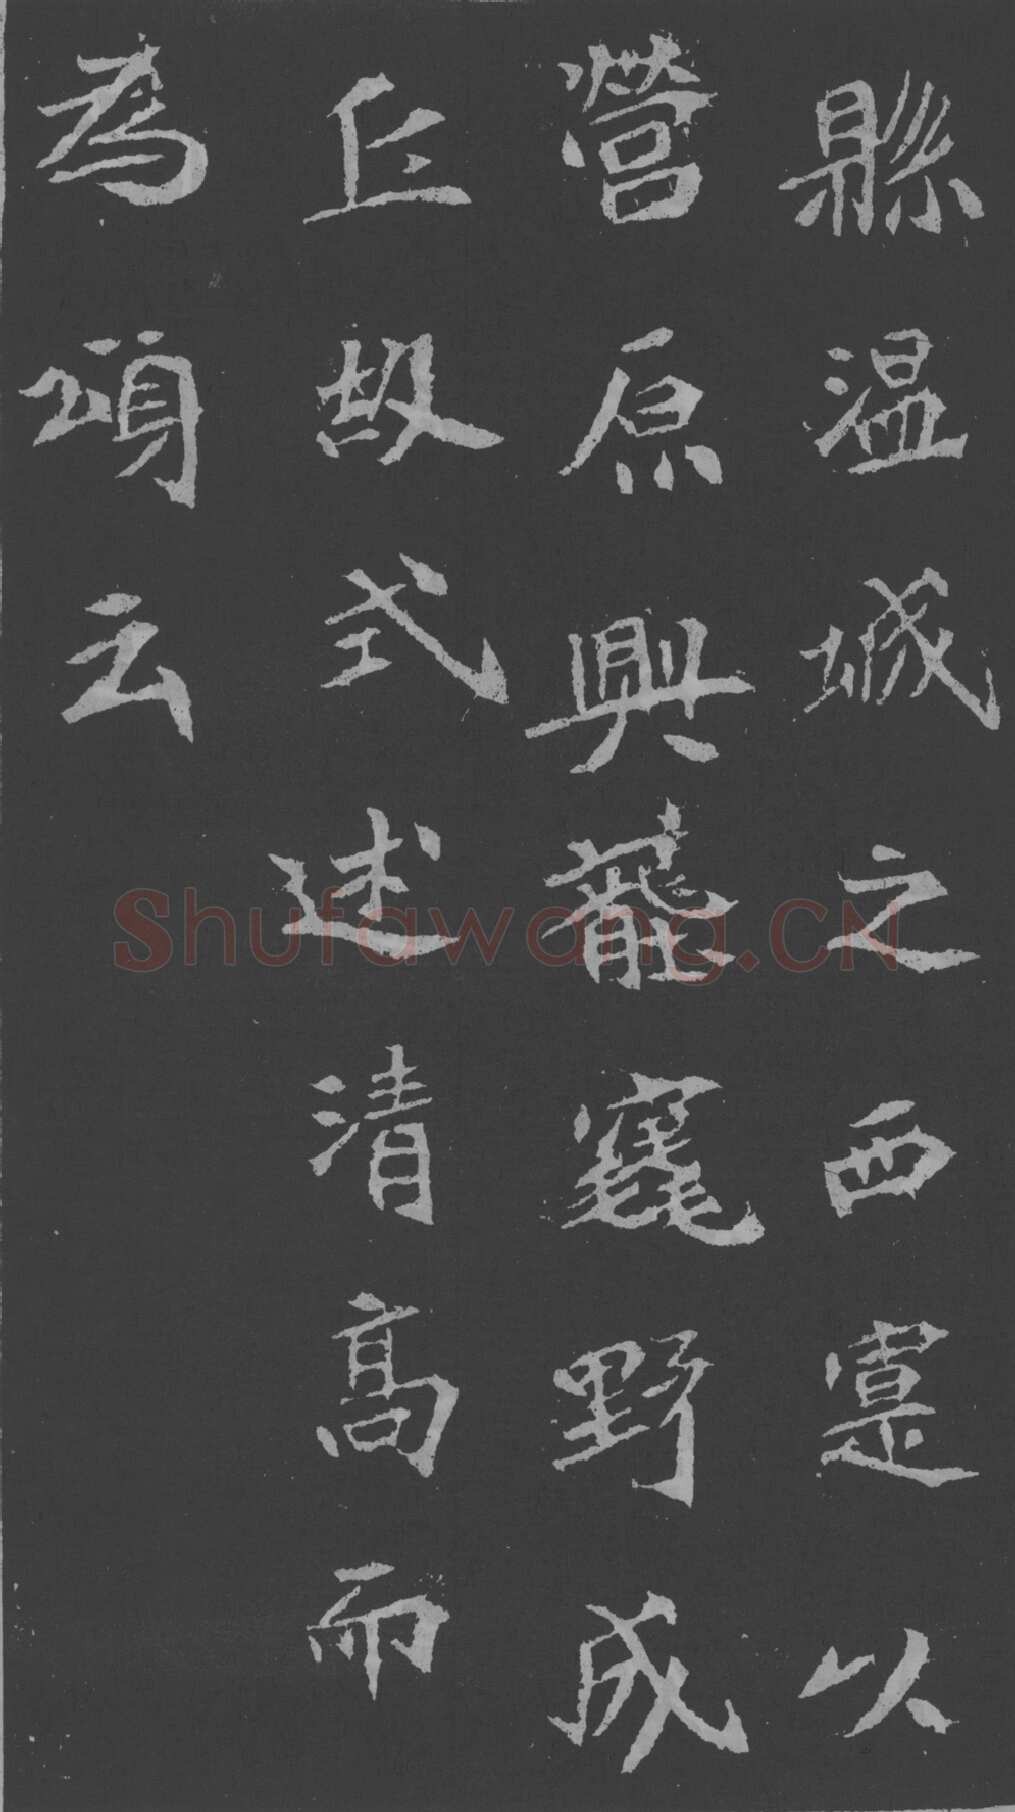 縣溫城之西寔以
營原興襄野成
丘故式述清高而
為頌云
Shufawang.CN